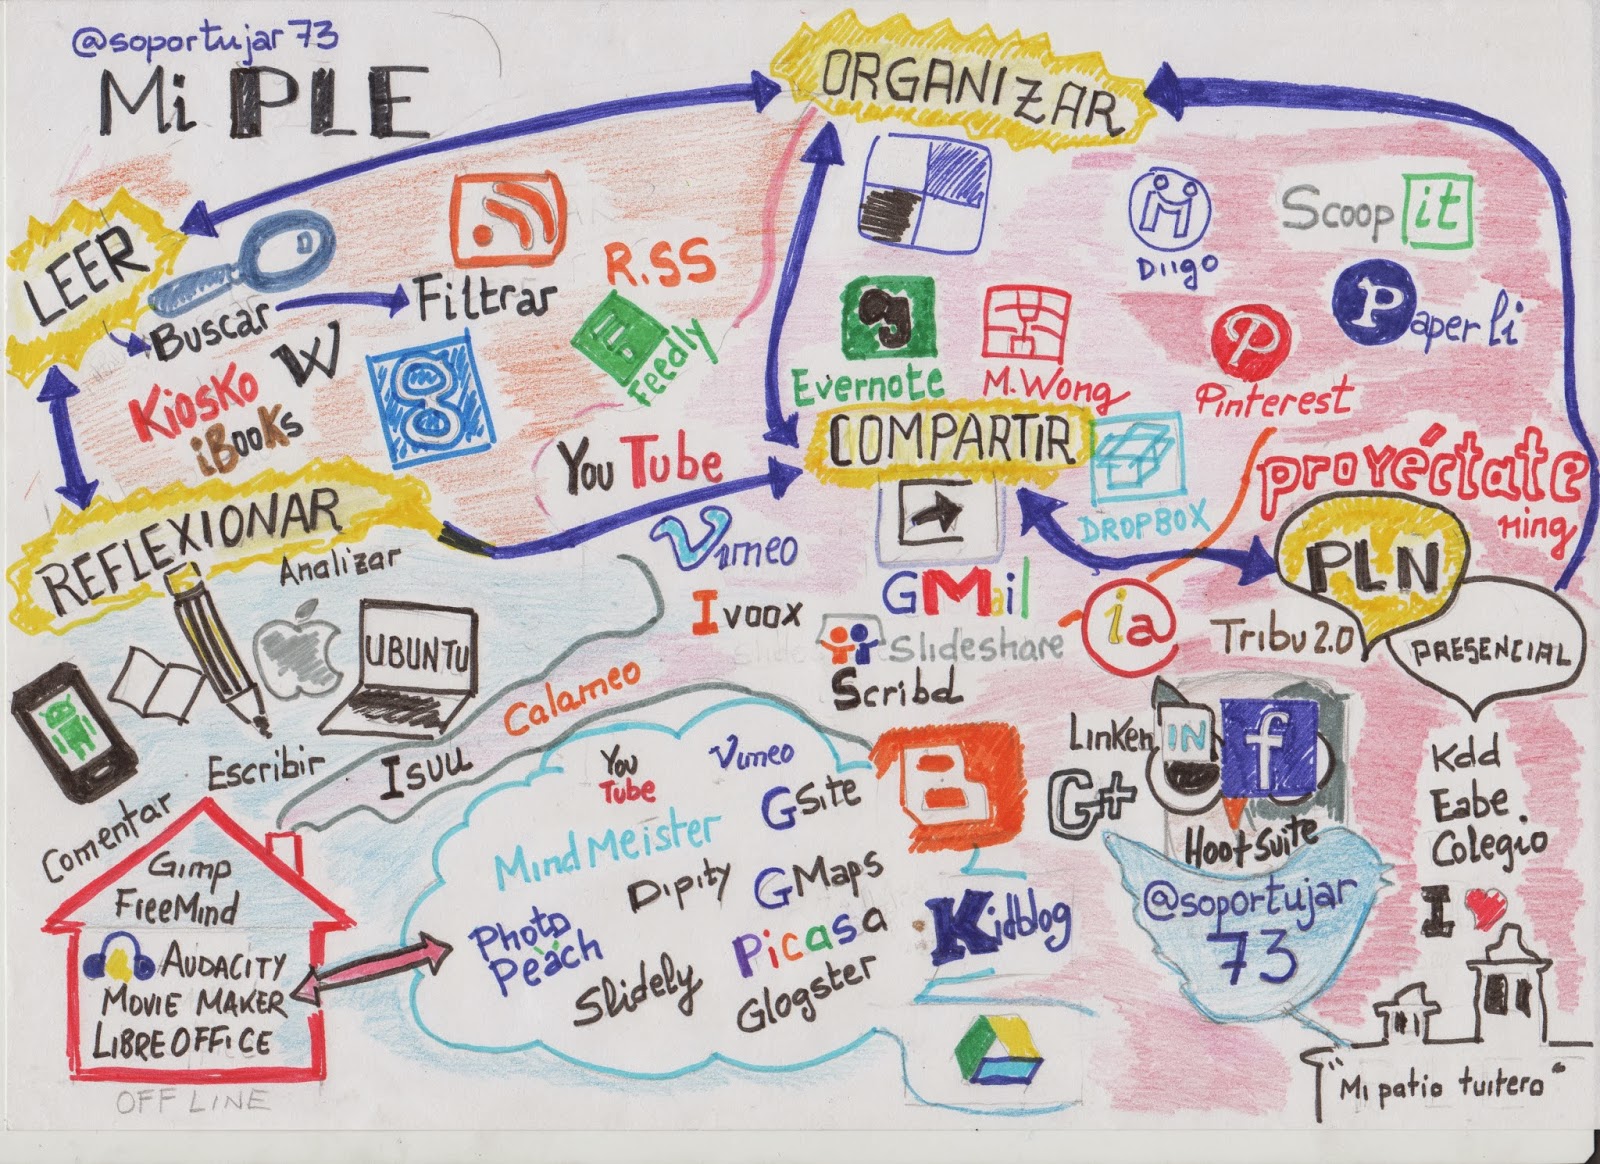 @soportujar73
Mi PLE
ORGANIZAR
LEER
Buscar
Filtrar
R.SS
Feedly
W
Kiosko
iBooKs
g
You Tube
Diigo
Scoop it
Paper li
Evernote
M.Wong
Pinterest
COMPARTIR
DROPBOX
proyéctate
ning
PLN
PRESENCIAL
Tribu 2.0
ia
REFLEXIONAR
Analizar
UBUNTU
Escribir
Comentar
Vimeo
Ivoox
GMail
Slideshare
Scribd
Calameo
Isuu
Gimp
FreeMind
AUDACITY
MOVIE MAKER
LIBRE OFFICE
OFF LINE
You
Tube
Vimeo
GSite
MindMeister
Dipity
GMaps
Photo
Peach
Picasa
Slidely
Glogster
B
Kidblog
Linken IN
f
G+
HootSuite
@soportujar
73
Kdd
Eabe
Colegio
I
"Mi patio tuitero"